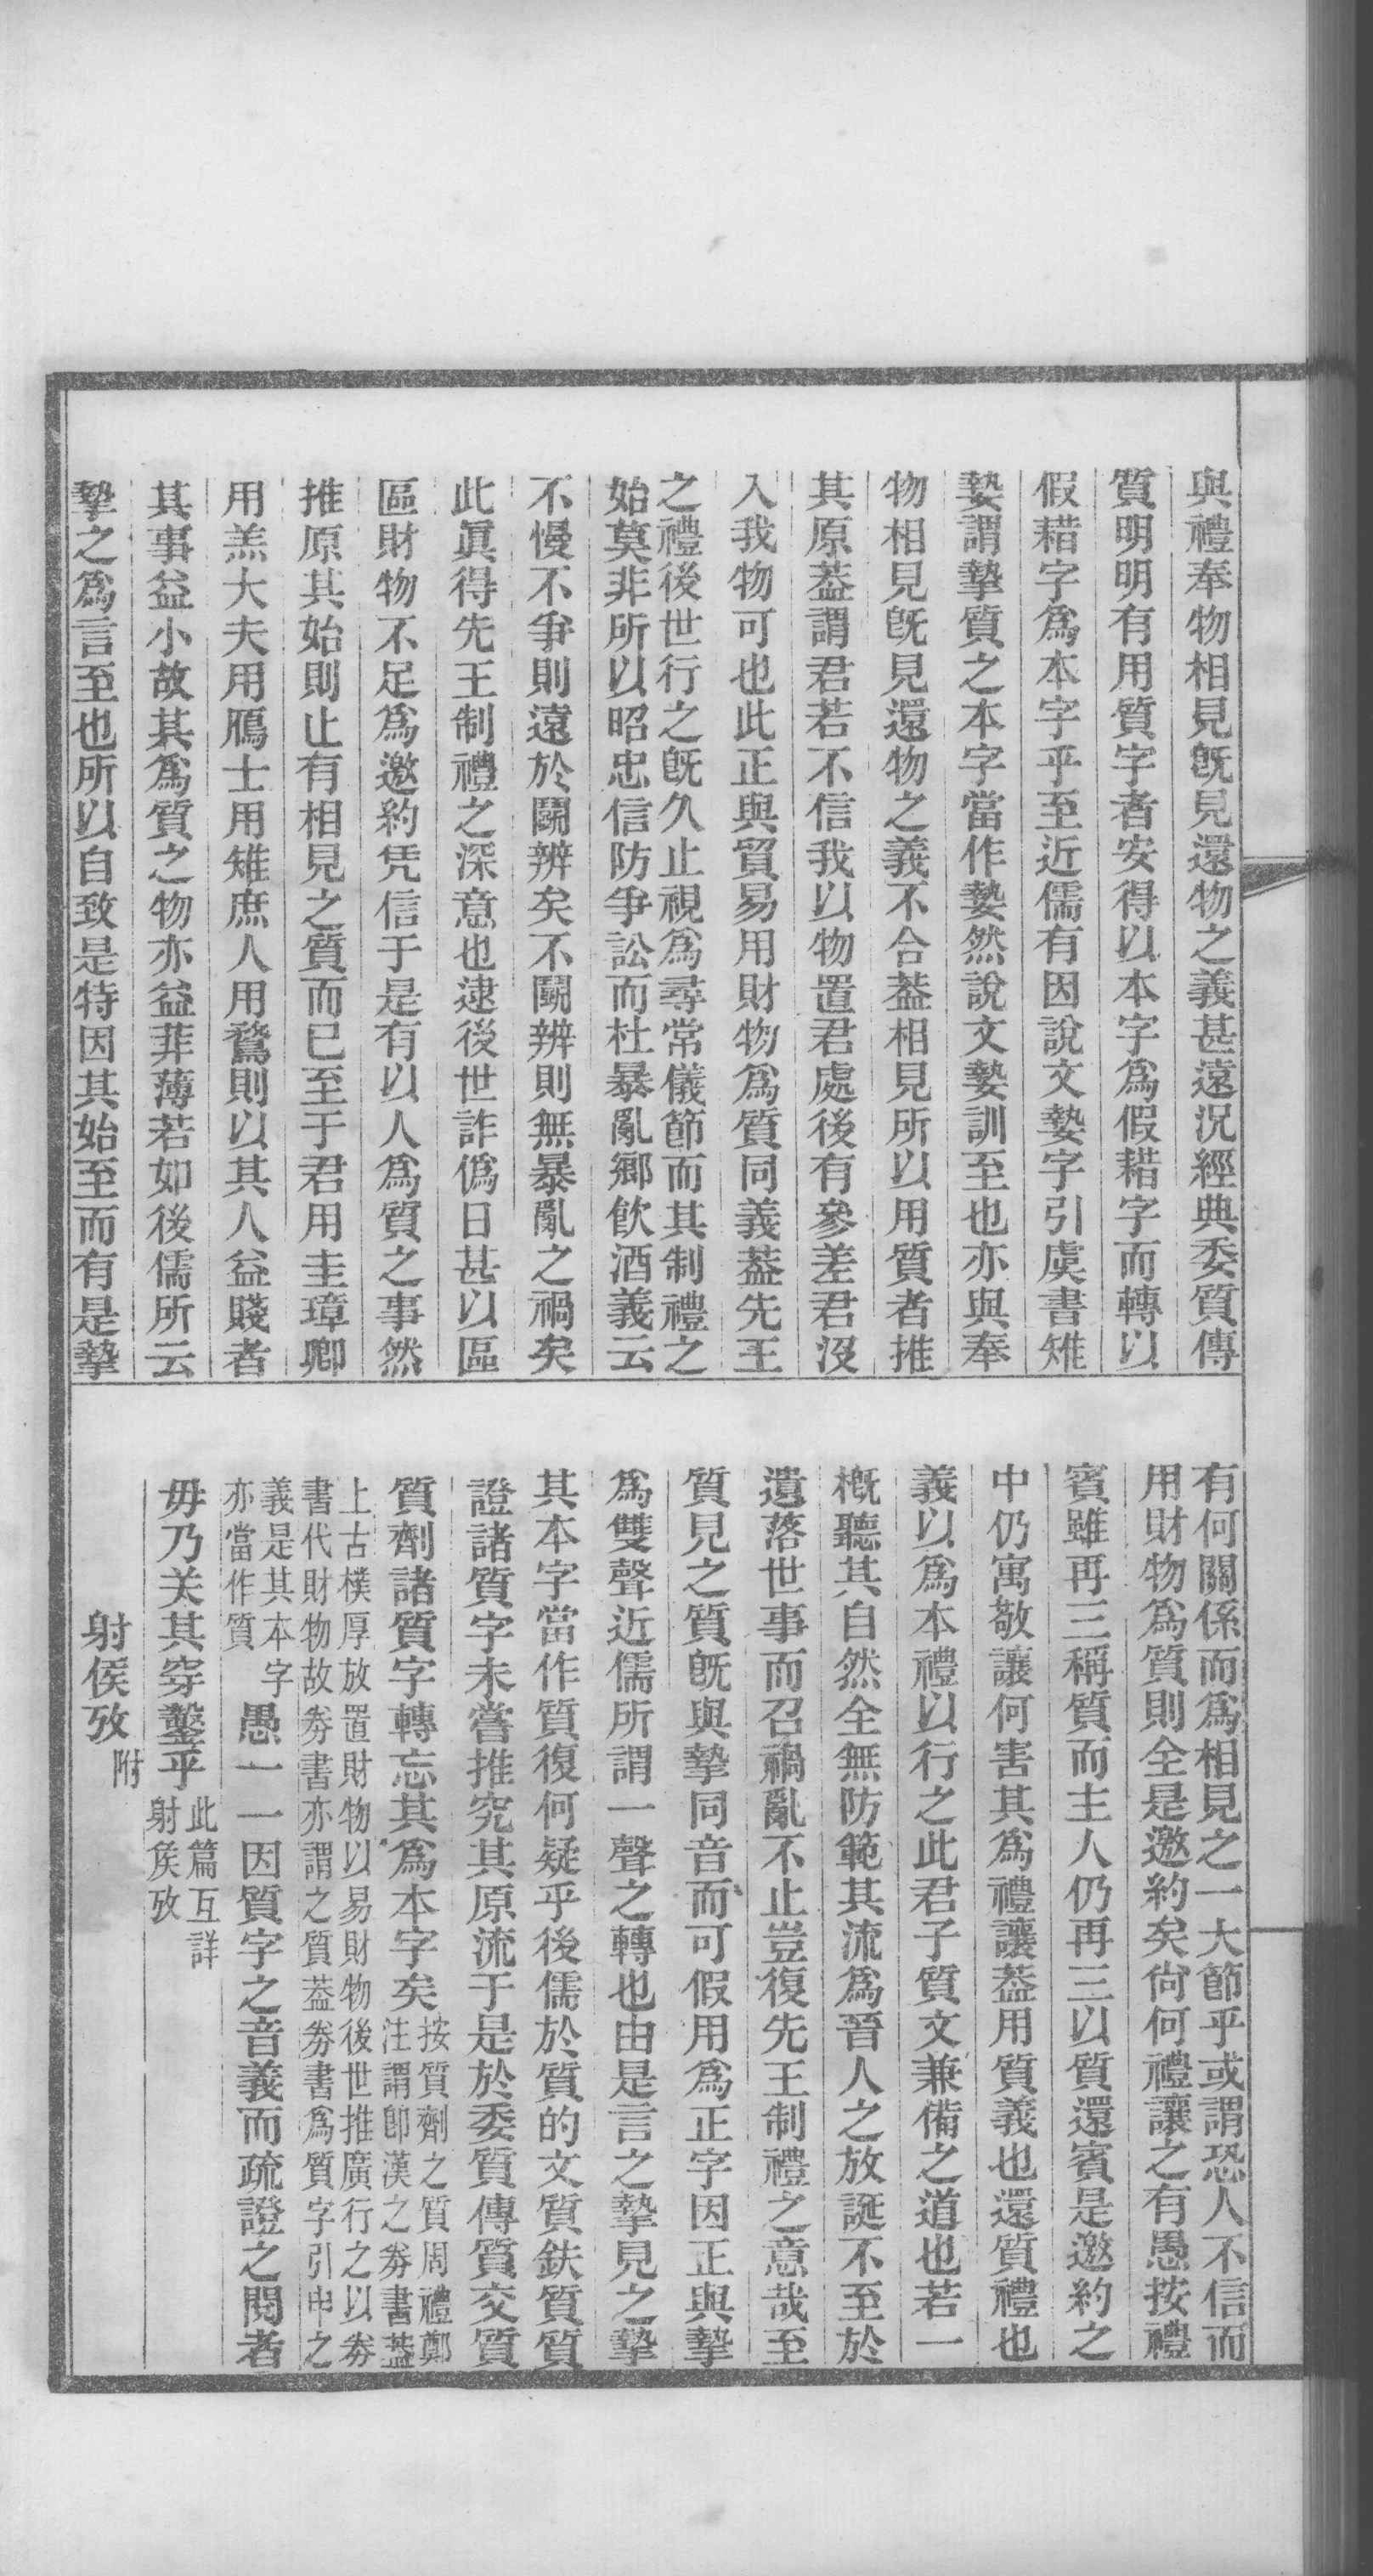 與禮奉物相見旣見還物之義甚遠況經典委質傳
質明明有用質字者安得以本字爲假耤字而轉以
假耤字爲本字乎至近儒有因說文𡠗字引虞書雉
𡠗謂摯質之本字當作𡠗然說文𡠗訓至也亦與奉
物相見旣見還物之義不合葢相見所以用質者推
其原葢謂君若不信我以物置君處後有參差君沒
入我物可也此正與貿易用財物爲質同義葢先王
之禮後世行之旣久止視爲尋常儀節而其制禮之
始莫非所以昭忠信防爭訟而杜暴亂鄉飮酒義云
不慢不爭則遠於鬭辨矣不鬭辨則無暴亂之禍矣
此眞得先王制禮之深意也逮後世詐僞日甚以區
區財物不足爲邀約凭信于是有以人爲質之事然
推原其始則止有相見之質而已至于君用圭璋卿
用羔大夫用鴈士用雉庶人用鶩則以其人益賤者
其事益小故其爲質之物亦益菲薄若如後儒所云
摯之爲言至也所以自致是特因其始至而有是摯
有何關係而爲相見之一大節乎或謂恐人不信而
用財物爲質則全是邀約矣尙何禮讓之有愚按禮
賓雖再三稱質而主人仍再三以質還賓是邀約之
中仍寓敬讓何害其爲禮讓葢用質義也還質禮也
義以爲本禮以行之此君子質文兼備之道也若一
槪聽其自然全無防範其流爲晉人之放誕不至於
遺落世事而召禍亂不止豈復先王制禮之意哉至
質見之質旣與摯同音而可假用爲正字因正與摯
爲雙聲近儒所謂一聲之轉也由是言之摯見之摯
其本字當作質復何疑乎後儒於質的文質鈇質質
證諸質字未嘗推究其原流于是於委質傳質交質
質劑諸質字轉忘其爲本字矣按質劑之質周禮鄭
注謂卽漢之劵書葢
上古樸厚放置財物以易財物後世推廣行之以劵
書代財物故劵書亦謂之質葢劵書爲質字引申之
義是其本字
亦當作質愚一一因質字之音義而疏證之閱者
毋乃关其穿鑿乎此篇互詳
射矦攷
射矦攷附